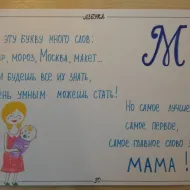 АЗБУКА
М
ЭТУ БУКВУ МНОГО СЛОВ:
МОРОЗ, МОСКВА, МАКЕТ...
БУДЕШЬ ВСЕ ИХ ЗНАТЬ,
УМНЫМ МОЖЕШЬ СТАТЬ!
НО САМОЕ ЛУЧШЕЕ
САМОЕ ПЕРВОЕ,
САМОЕ ГЛАВНОЕ СЛОВО
МАМА!